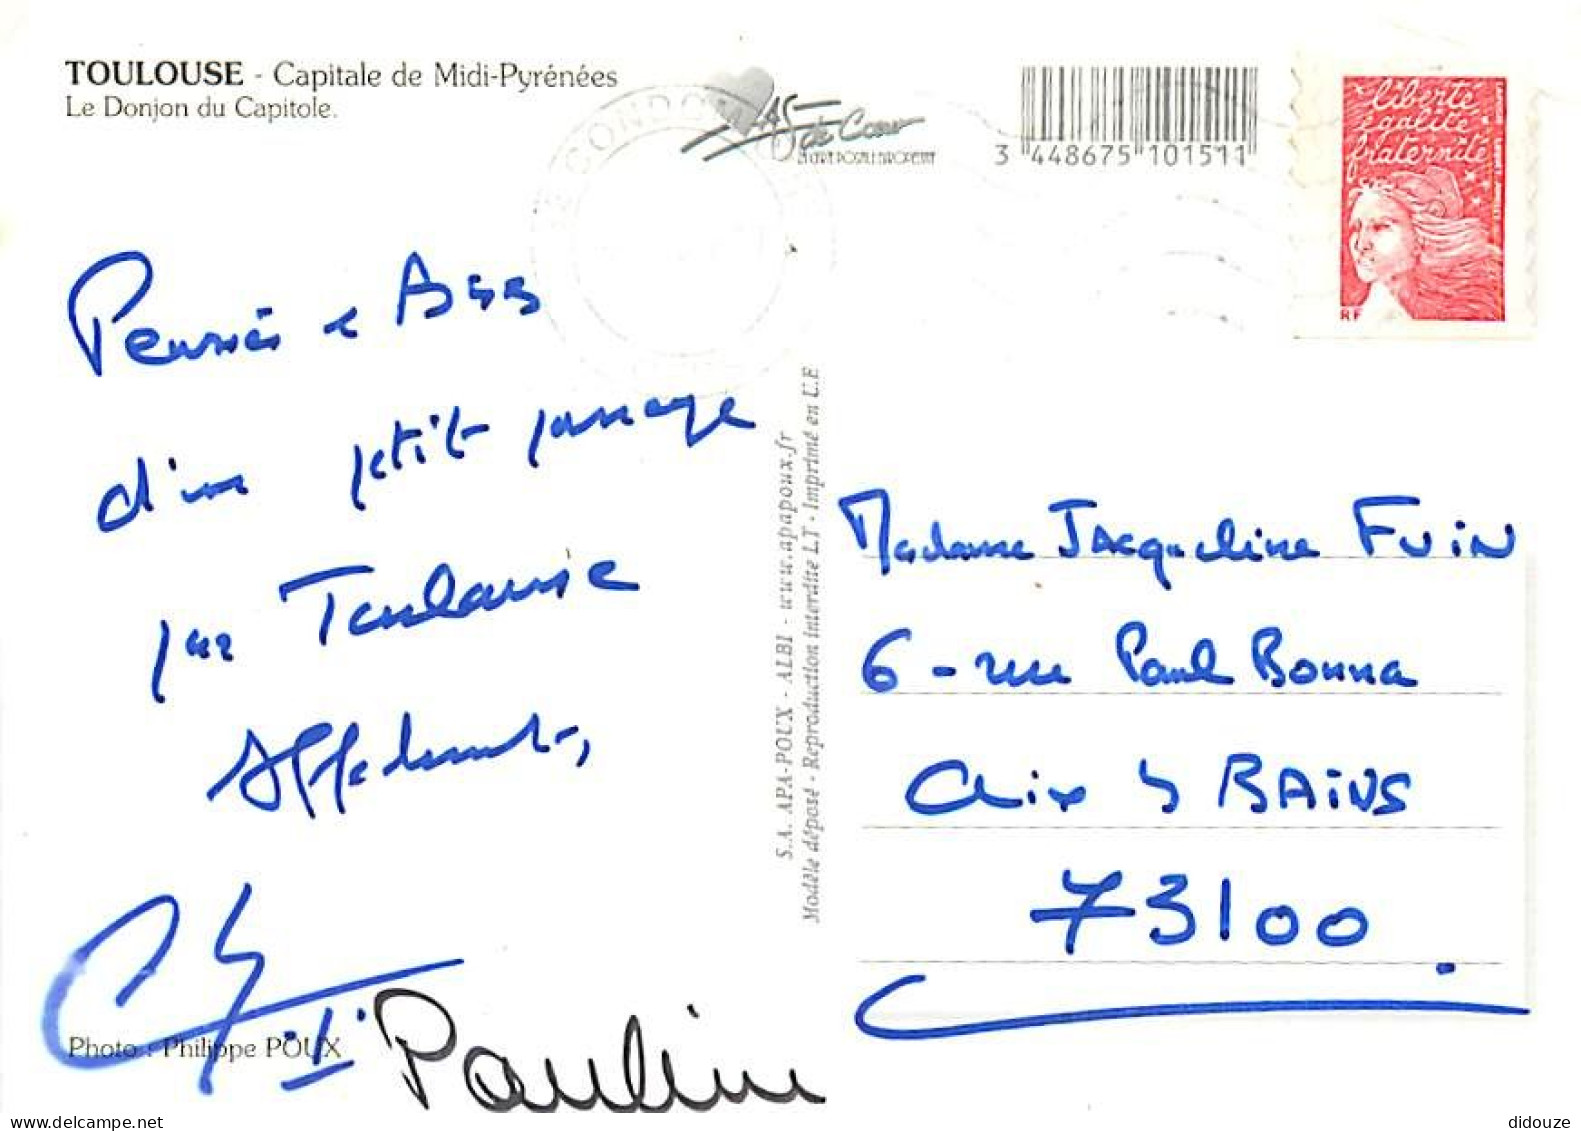 TOULOUSE - Capitale de Midi-Pyrénées
Le Donjon du Capitole.
de Cœur
LA CARTE POSTALE EUROPEENNE
3 448675 101511
liberté
égalité
fraternité
RF
Pensées
d'un petit passage
par Toulouse
Affectueusement,
Pauline
Photo : Philippe POUX
S.A. APA-POUX - ALBI - www.apapoux.fr
Modèle déposé - Reproduction interdite LT - Imprimé en U.E
Madame JACqueline FUIN
6 - rue Paul Bonna
Aix BAINS
73100
didouze